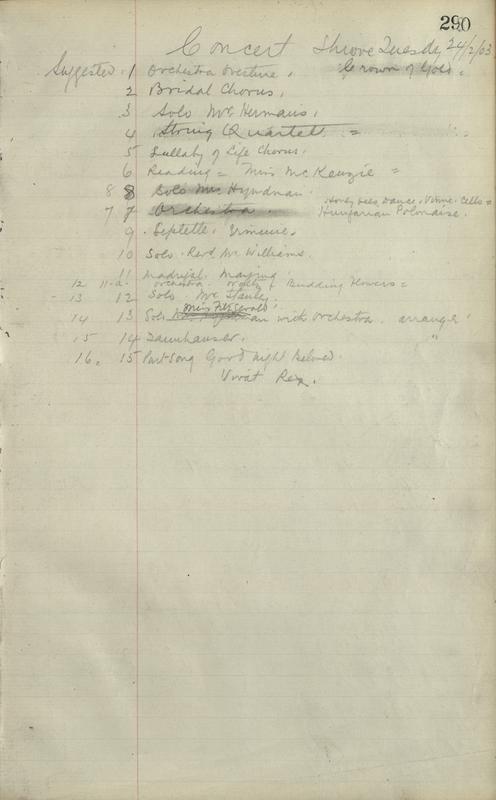 290
Concert Shrove Tuesday 24/2/03
Suggested. 1 Orchestra Overture. "Crown of Gold.
2 Bridal Chorus.
3 Solo Mrs Hermans.
4 String Quartett =
5 Lullaby of Life Chorus.
6 Reading = Miss McKenzie =
8 8 Solo Mrs Hyndman.
7 7 Orchestra. Dance, Cello =
Hungarian Polonaise.
9 Septette.
10 Solo. Revd Mr Williams.
11 Madrigal. Maying
12 11-a. Orchestra. Budding Flowers =
13 12 Solo Mr
14 13 Solo Miss FitzGerald with Orchestra arranged
15 14 Tannhauser. "
16. 15 Part Song Good night Beloved.
Vivat Rex.